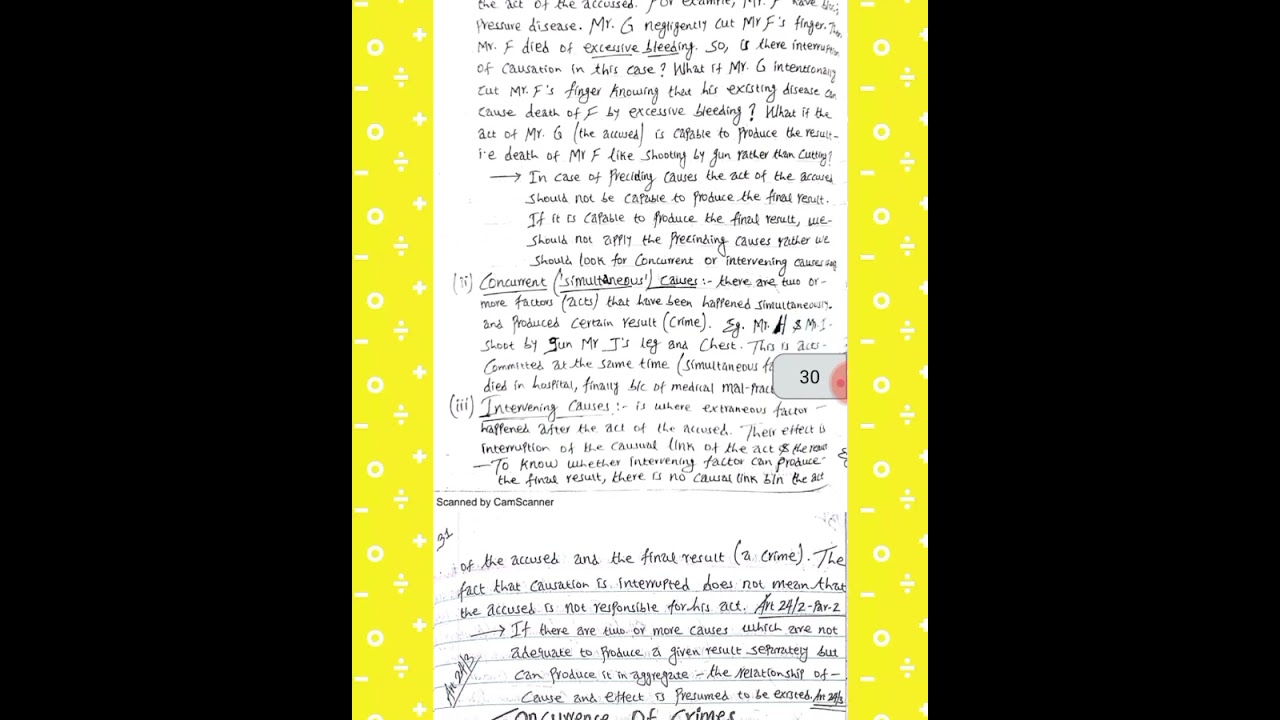 the act of the accussed. For example, Mr. F have
Pressure disease. Mr. G negligently cut Mr F's finger. Then
Mr. F died of excessive bleeding. So, is there interruption
of causation in this case? What if Mr. G intentionally
cut Mr. F's finger knowing that his existing disease can
cause death of F by excessive bleeding? What if the
act of Mr. G (the accused) is capable to produce the result-
i.e death of Mr F like shooting by gun rather than cutting?
→ In case of Preciding causes the act of the accused
should not be capable to produce the final result.
If it is capable to produce the final result, we-
should not apply the Precinding causes rather we
should look for concurrent or intervening causes
(ii) Concurrent ('simultaneous') causes :- there are two or-
more factors (acts) that have been happened simultaneously.
and produced certain result (crime). Eg. Mr. H & Mr. I-
shoot by gun Mr J's leg and chest. This is acts-
committed at the same time (simultaneous
died in hospital, finally b/c of medical mal-pract
30
(iii) Intervening causes :- is where extraneous factor -
happened after the act of the accused. Their effect is
interruption of the causual link of the act & the result
- To know whether intervening factor can produce-
the final result, there is no causal link b/n the act
Scanned by CamScanner
31
of the accused and the final result (a crime). The
fact that causation is interrupted does not mean that
the accused is not responsible for his act. Art 24/2-Par-2
→ If there are two or more causes which are not
adequate to produce a given result separately but
Art 24/3
can produce it in aggregate - the relationship of-
cause and effect is presumed to be existed. Art 24/3
Concurrence of Crimes